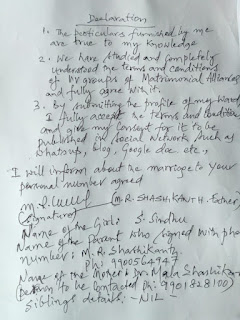 Declaration
1. The particulars furnished by me
are true to my knowledge
2. We have studied and completely
understood the terms and conditions
of groups of Matrimonial Alliances
and fully agree with it.
3. By submitting the profile of my ward
I fully accept the terms and conditions
and give my consent for it to be
published in Social Network such as
Whatsup, blog, Google doc etc.,
I will inform about the marriage to your
personal number agreed
(M.R. SHASHIKANTH. Father)
(Signature)
Name of the Girl: S. Sindhu
Name of the Parent who signed with phone
number: M. R. Shashikanth
Ph: 9900564947
Name of the Mother: Mala Shashikanth
(Person to be Contacted Ph: 9901828100)
Siblings details: - NIL -